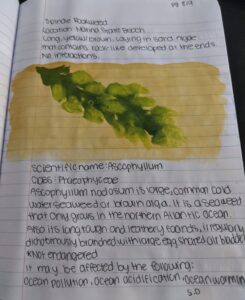 pg 8/13
Spindle Rockweed
Location: Marina State Beach
Long, yellow brown, laying in sand, nodge
that contains, rock like developed at the ends.
No interactions.
Scientific name: Ascophyllum
Class: Phaeophyceae
Ascophyllum nodosum is large, common cold
water seaweed or brown alga. It is a seaweed
that only grows in the northern Atlantic ocean.
Also its long tough and leathery fronds, irregularly
dichotomously branched with large, egg shaped air bladders
Not endangered
It may be affected by the following:
Ocean pollution, ocean acidification, ocean warming
S.D